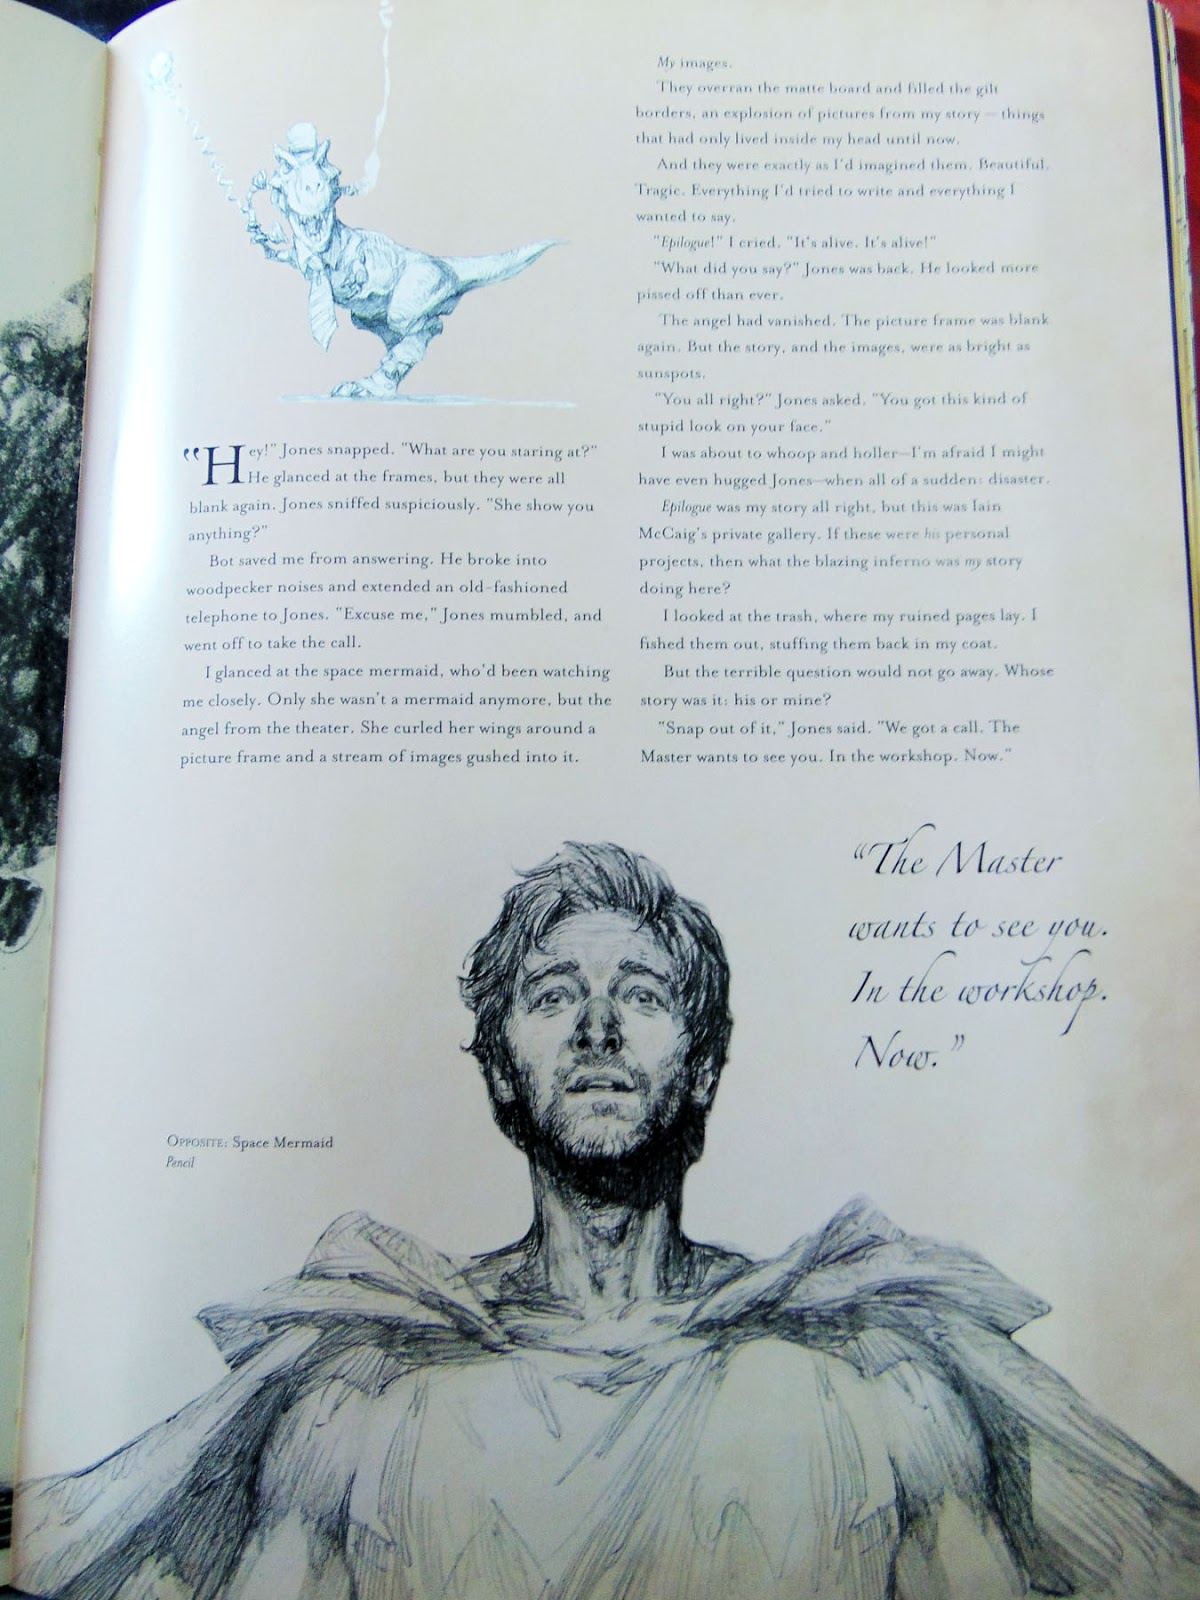 "Hey!" Jones snapped. "What are you staring at?"
He glanced at the frames, but they were all
blank again. Jones sniffed suspiciously. "She show you
anything?"
Bot saved me from answering. He broke into
woodpecker noises and extended an old-fashioned
telephone to Jones. "Excuse me," Jones mumbled, and
went off to take the call.
I glanced at the space mermaid, who'd been watching
me closely. Only she wasn't a mermaid anymore, but the
angel from the theater. She curled her wings around a
picture frame and a stream of images gushed into it.
My images.
They overran the matte board and filled the gilt
borders, an explosion of pictures from my story — things
that had only lived inside my head until now.
And they were exactly as I'd imagined them. Beautiful.
Tragic. Everything I'd tried to write and everything I
wanted to say.
"Epilogue!" I cried. "It's alive. It's alive!"
"What did you say?" Jones was back. He looked more
pissed off than ever.
The angel had vanished. The picture frame was blank
again. But the story, and the images, were as bright as
sunspots.
"You all right?" Jones asked. "You got this kind of
stupid look on your face."
I was about to whoop and holler—I'm afraid I might
have even hugged Jones—when all of a sudden: disaster.
Epilogue was my story all right, but this was Iain
McCaig's private gallery. If these were his personal
projects, then what the blazing inferno was my story
doing here?
I looked at the trash, where my ruined pages lay. I
fished them out, stuffing them back in my coat.
But the terrible question would not go away. Whose
story was it: his or mine?
"Snap out of it," Jones said. "We got a call. The
Master wants to see you. In the workshop. Now."
"The Master
wants to see you.
In the workshop.
Now."
Opposite: Space Mermaid
Pencil